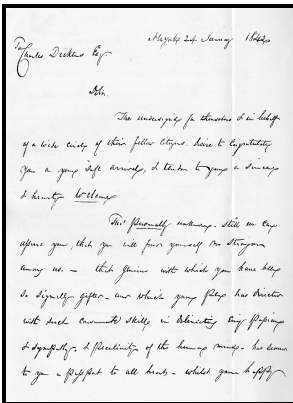 24 January 1842
To Charles Dickens Esqr
Sir.
The undersigned for themselves & in behalf
of a wide circle of their fellow citizens. desire to congratulate
you on your safe arrival, & tender to you a sincere
& hearty Welcome
Tho' personally unknown. still we can
assure you, that you will find yourself no Stranger
among us. — that Genius with which you have been
so signally gifted — and which your pen has directed
with such consummate skill in delineating every passion
& sympathy, & peculiarity of the human mind — has secured
to you a passport to all hearts — whilst your happy